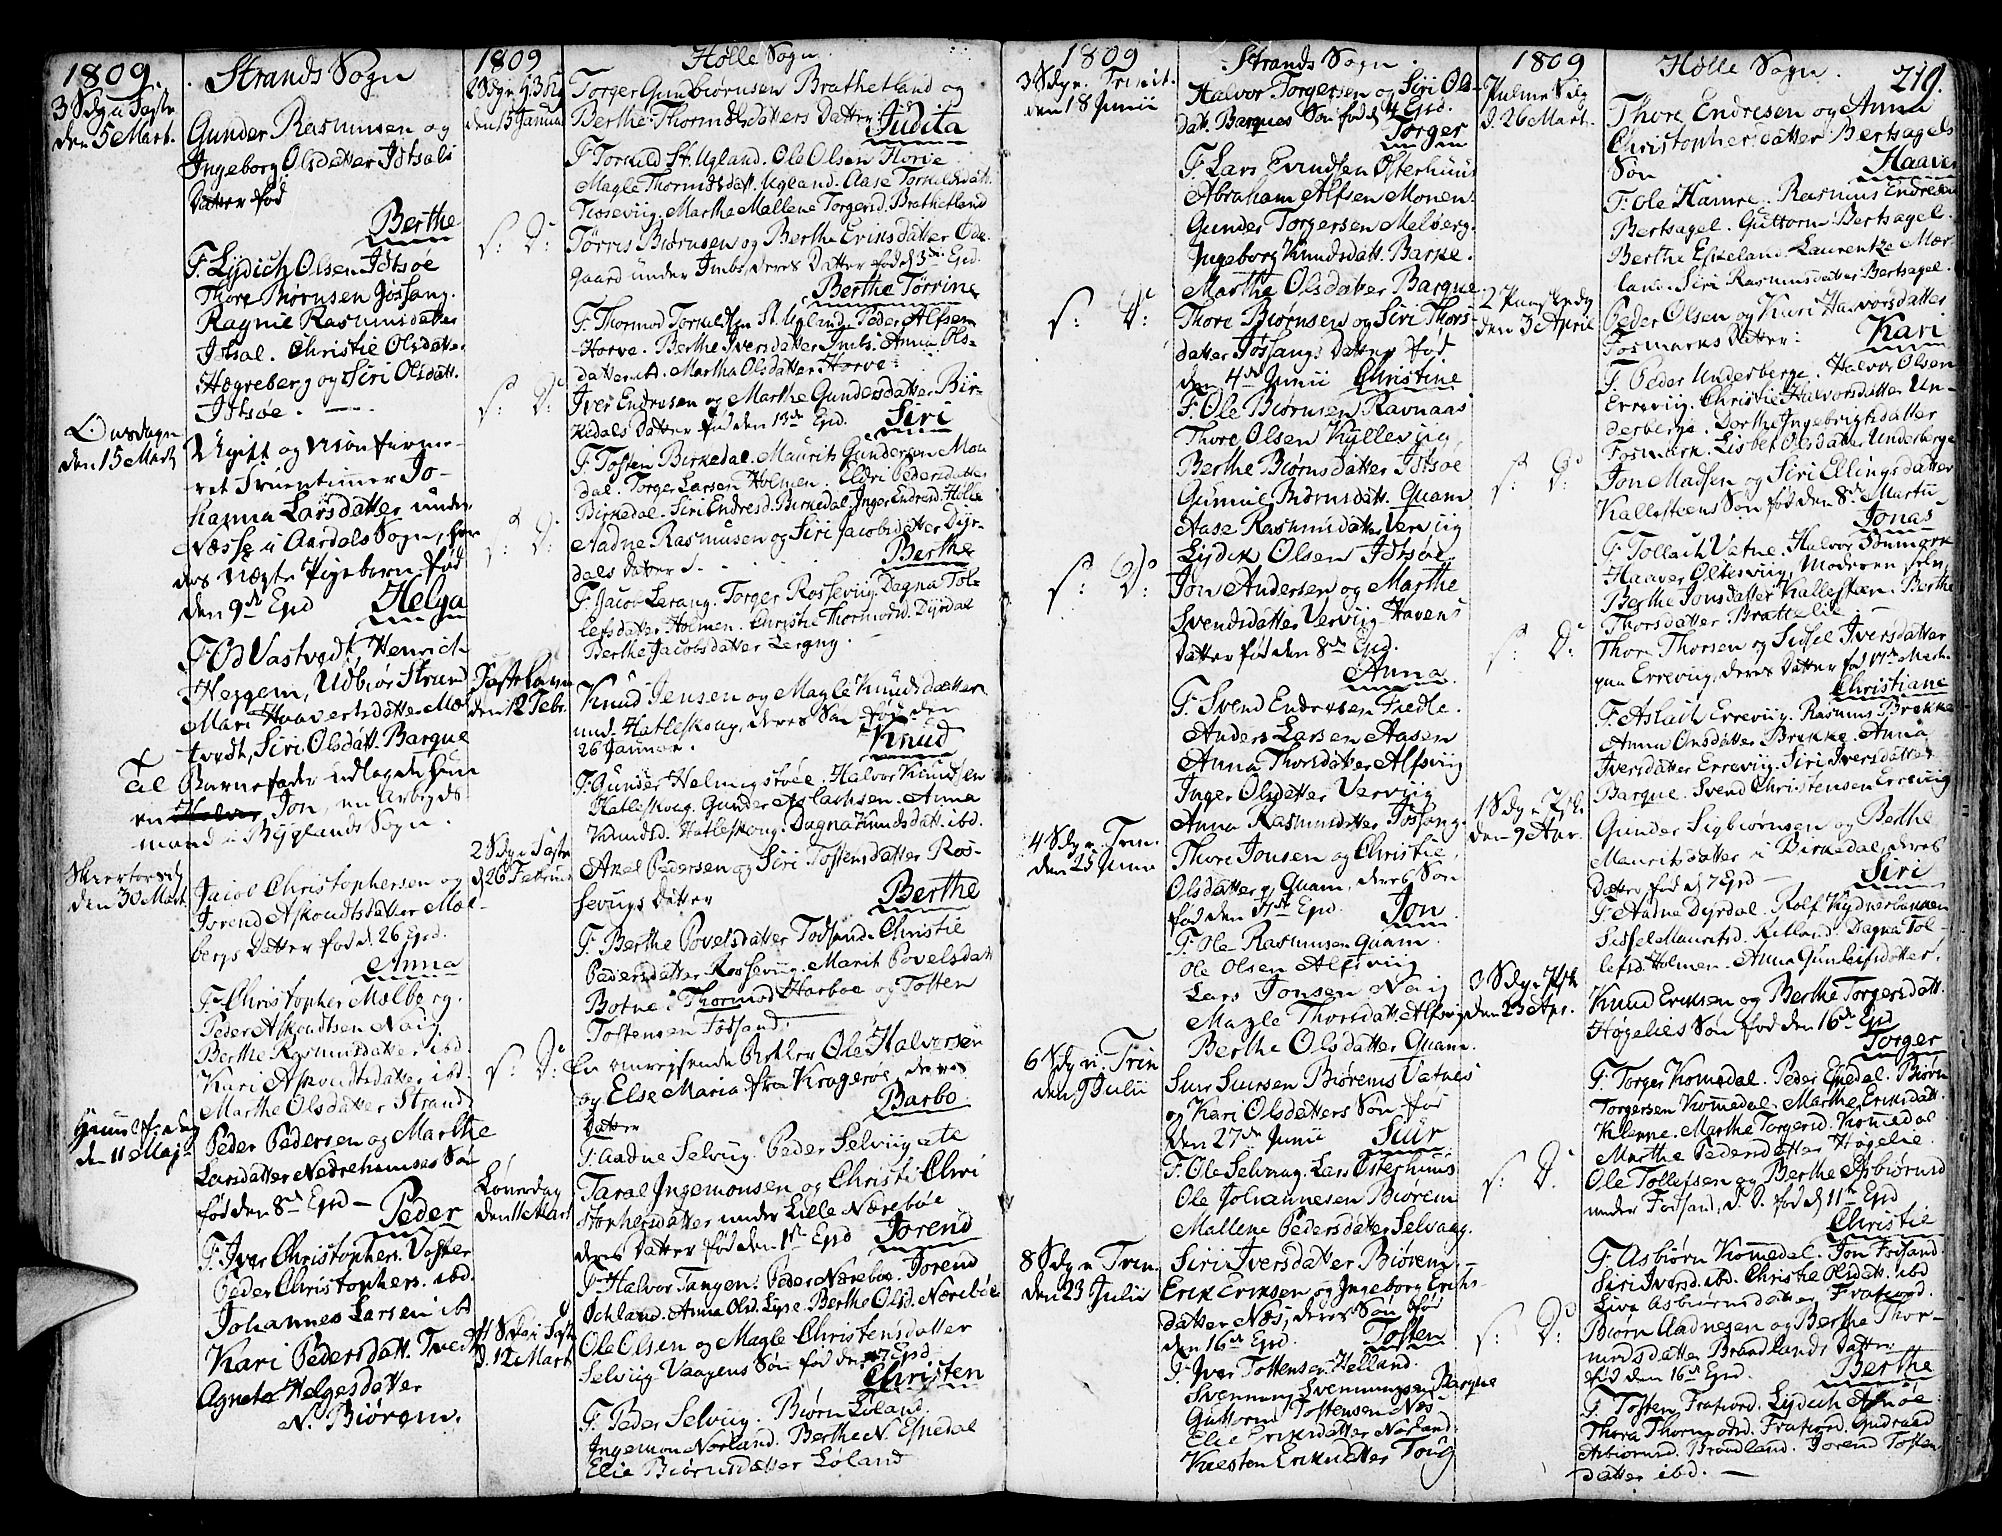 1809.
Strands Sogn
3 Sdg i Faste
den 5 Mart.
Gunder Rasmusen og
Ingeborg Olsdatter Idtsals
Datter fød
Berthe
F. Lydich Olsen Idtsøe
Thore Biørnsen Jøssang.
Ragnie Rasmusdatter
Idtsal. Christie Olsdatter
Hægreberg og Siri Olsdatt.
Idtsøe.
Onsdagen
den 15 Marti
Ugift og
ret Fruentimer Jo-
hanna Larsdatter under
Næsse i Aardals Sogn,
des Uægte Pigebarn fød
den 9de Ejd Helga
F. Od Vastvedt, Henrich
Heggem, Udbiør Strand
Mari Haavertsdatter Mæl
tvedt, Siri Olsdatt. Barque
Til Barnefader udlagde hun
en Jon, en Arbejds
mand i Byglands Sogn.
Skiertorsdg
den 30 Mart.
Jacob Christophersen og
Jorend Askoudtsdatter Mæl-
bergs Datter fød d. 26 Ejd.
Anna
F. Christopher Mælberg.
Peder Askoudtsen Naig
Berthe Rasmusdatter ibd.
Kari Askoudtsdatter ibd.
Marthe Olsdatter Strand
Himelf. dag
den 11 Maji
Peder Pedersen og Marthe
Larsdatter Nedrehuses Søn
fød den 8de Ejd - Peder
F. Iver Christophers. Voster
Peder Christophers. ibd.
Johannes Larsen ibd
Kari Pedersdatt. Tvedt
Agneta Helgesdatter
N. Biørem.
1809
Holle Sogn.
2 Sdg. e. H. 3 K.
den 15 Januar
Torger Gunbiørnsen Brathetland og
Berthe Thormodsdatters Datter: Judita
F. Torkild St. Ugland. Ole Olsen Horve
Magle Thormodsdatt. Ugland. Aase Torkilsdatt.
Tiosevig. Marthe Mallene Torgersd. Brathetland
S: D: Tørris Biørnsen og Berthe Eriksdatter Øde-
gaard under Imbs, deres Datter fød d. 3de Ejd.
Berthe Tørrine
F. Thormod Torkildsen St. Ugland. Peder Alfsen
Horve. Berthe Iversdatter Imbs. Anna Ols-
datter. Martha Olsdatter Horve
S: D: Iver Endresen og Marthe Gundersdatter Bir-
kedals Datter fød den 13de Ejd. Siri
F. Tosten Birkedal. Maurits Gundersen Mou
dal. Torger Larsen Holmen. Eldri Pedersdatter
Birkedal. Siri Endresd. Birkedal. Inger Endresd. Holle
S: D: Aadne Rasmusen og Siri Jacobsdatter Dyr-
dals Datter Berthe
F. Jacob Lerang. Torger Rossevig. Dagna Tol-
lefsdatter Holmen. Christie Thormodsd. Dyrdal
Berthe Jacobsdatter Lergny.
Fastelavn
den 12 Febr.
Knud Jensen og Magle Knudsdatter
und. Hatleskoug, deres Søn fød den
26 Januar. Knud
F. Gunder Helmigstøe. Halvor Knudsen
Hatleskoug. Gunder Aslachsen. Anna
Knudsd. Hatleskoug. Dagna Knudsdatt. ibd.
2 Sdg i Faste
d. 26 Februar
Axel Pedersen og Siri Tostensdatter Ros-
sevigs Datter Berthe
F. Berthe Povelsdatter Fodsand. Christie
Pedersdatter Rossevig. Marit Povelsdatt
Botne. Thormod Harboe og Tosten
Tostensen Fodsand.
S: D: En omrejsende Ole Halversen
og Else Maria fra Kragerøe, deres
Datter Barbo
F. Aadne Selvig. Peder Selvig etc
Løverdag
den 11 Mart
Taral Ingemonsen og Christi Chri
stophersdatter under Lille Nærebøe
deres Datter fød den 1ste Ejd Jorend
F. Halvor Tangen. Peder Nærebøe. Jorend
Ichland. Anna Olsd. Lyse. Berthe Olsd. Nærebøe
4 Sdg i Faste
d. 12 Mart
Ole Olsen og Magle Christensdatter
Selvig Vaagens Søn fød den 7 Ejd
Christen
F. Peder Selvig. Biørn Løland.
Ingemon Norland. Berthe N. Espedal
Elie Biørnsdatter Løland
1809
Strands Sogn.
3 Sdg. e. Trinit.
den 18 Junii
Halvor Torgersen og Siri Ols-
datt. Barques Søn fød d. 4 Ejd.
Torger
F. Lars Evindsen Østerhuus
Abraham Alfsen Monen.
Gunder Torgersen Melberg.
Ingeborg Knudsdatt. Barke.
Marthe Olsdatter Barque
S: D: Thore Biørnsen og Siri Thors-
datter Jøssangs Datter fød
den 4de Junii Christine
F. Ole Biørnsen Ravnaas
Thore Olsen Kyllevig
Berthe Biørnsdatter Idtsøe
Gunnil Biørnsdatt. Quam
Aase Rasmusdatter Vervig
Lydik Olsen Idtsøe.
S: D: Jon Andersen og Marthe
Svendsdatter Vervig Havens
Datter fød den 8de Ejd.
Anna
F. Svend Endresen Fiedle.
Anders Larsen Aasen
Anna Thorsdatter Alfsvig
Inger Olsdatter Vervig
Anna Rasmusdatter Jøssang.
4 Sdg e. Trin.
den 25 Junii
Thore Jonsen og Christie
Olsdatter Quam, deres Søn
fød den 17de Ejd. Jon
F. Ole Rasmusen Quam.
Ole Olsen Alfsvig
Lars Jonsen Naig
Magle Thorsdatt. Alfsvig
Berthe Olsdatter Quam.
6 Sdg e. Trin
den 9 Julii
Siur Siursen Biørems Vatnes
og Kari Olsdatters Søn fød
den 27de Junii Siur
F. Ole Selvaag. Lars Østerhuus
Ole Johannesen Biørem
Mallene Pedersdatter Selvaag.
Siri Iversdatter Biørem.
8 Sdg e Trin.
den 23 Julii
Erik Eriksen og Ingeborg Eriks-
datter Næs, deres Søn fød
den 16de Ejd. Tosten
F. Iver Tostensen Helland.
Svenning Svenningsen Barque
Guttorm Tostensen Næs
Elie Eriksdatter Norland.
Kiesten Eriksdatter Toug
1809
Holle Sogn.
219.
Palme Sdg
d. 26 Mart.
Thore Endresen og Anna
Christophersdatter Bertsagels
Søn Haaver
F. Ole Hamre. Rasmus Endresen
Bertsagel. Guttorm Bertsagel.
Berthe Eskeland. Laurentze Mær
land. Siri Rasmusdatter Bertsagel.
2 Paaskedg
den 3 April
Peder Olsen og Kari Halvorsdatter
Fosmarks Datter: Kari
F. Peder Underberge. Halvor Olsen
Errevig. Christie Halvorsdatter Un-
derberge. Dorthe Ingebrigtsdatter
Fosmark. Lisbet Olsdatter Underberge
S: D: Jon Madsen og Siri Ellingsdatter
Kallesteens Søn fød den 8de Martii
Jonas
F. Tollach Vatne. Halvor Fosmark
Haaver Oltesvig, Moderen selv,
Berthe Jonsdatter Kallesteen. Berthe
Thorsdatter Brattelie.
S: D: Thore Thorsen og Sidsel Iversdatter
paa Errevig, deres Datter fød 17de Mart.
Christiane
F. Aslach Errevig. Rasmus Brekke
Anna Onsdatter Brekke. Anna
Iversdatter Errevig. Siri Iversdatter
Barque. Svend Christensen Errevig
1 Sdg e. Psk.
den 9 Apr.
Gunder Sigbiørnsen og Berthe
Mauritsdatter i Birkedal, deres
Datter fød d. 7 Ejd - Siri
F. Aadne Dyrdal. Rolf Kydnerbakken
Sissel Mauritsd. Rilland. Dagna Tol-
lefsd. Holmen. Anna Gunleifsdatter.
3 Sdg e Psk
den 23 Apr.
Knud Eriksen og Berthe Torgersdatt.
Høgelies Søn fød den 16de Ejd
Torger
F. Torger Komedal. Peder Espedal. Biørn
Torgersen Komedal. Marthe Eriksdatt.
Kleppe. Marthe Torgersd. Komedal
Marthe Pedersdatter Høgelie.
S: D. Ole Tollefsen og Berthe Asbiørnsd
under Fodsand, d. D. fød d. 11te Ejd
Christie
F. Asbiørn Komedal. Jon Fodsand.
Siri Iversd. ibd. Christie Olsdatt. ibd
Liva Asbiørnsdatter Fraford.
S: D: Biørn Aadnesen og Berthe Thor-
modsdatter Brandlands Datter
fød den 16de Ejd. Berthe
F. Tosten Frafiord. Lydich Adsøe.
Thora Thormodsd. Frafiord. Gudraad
Asbiørnsd. Brandland. Jorend Tosten-
datter ibd. -